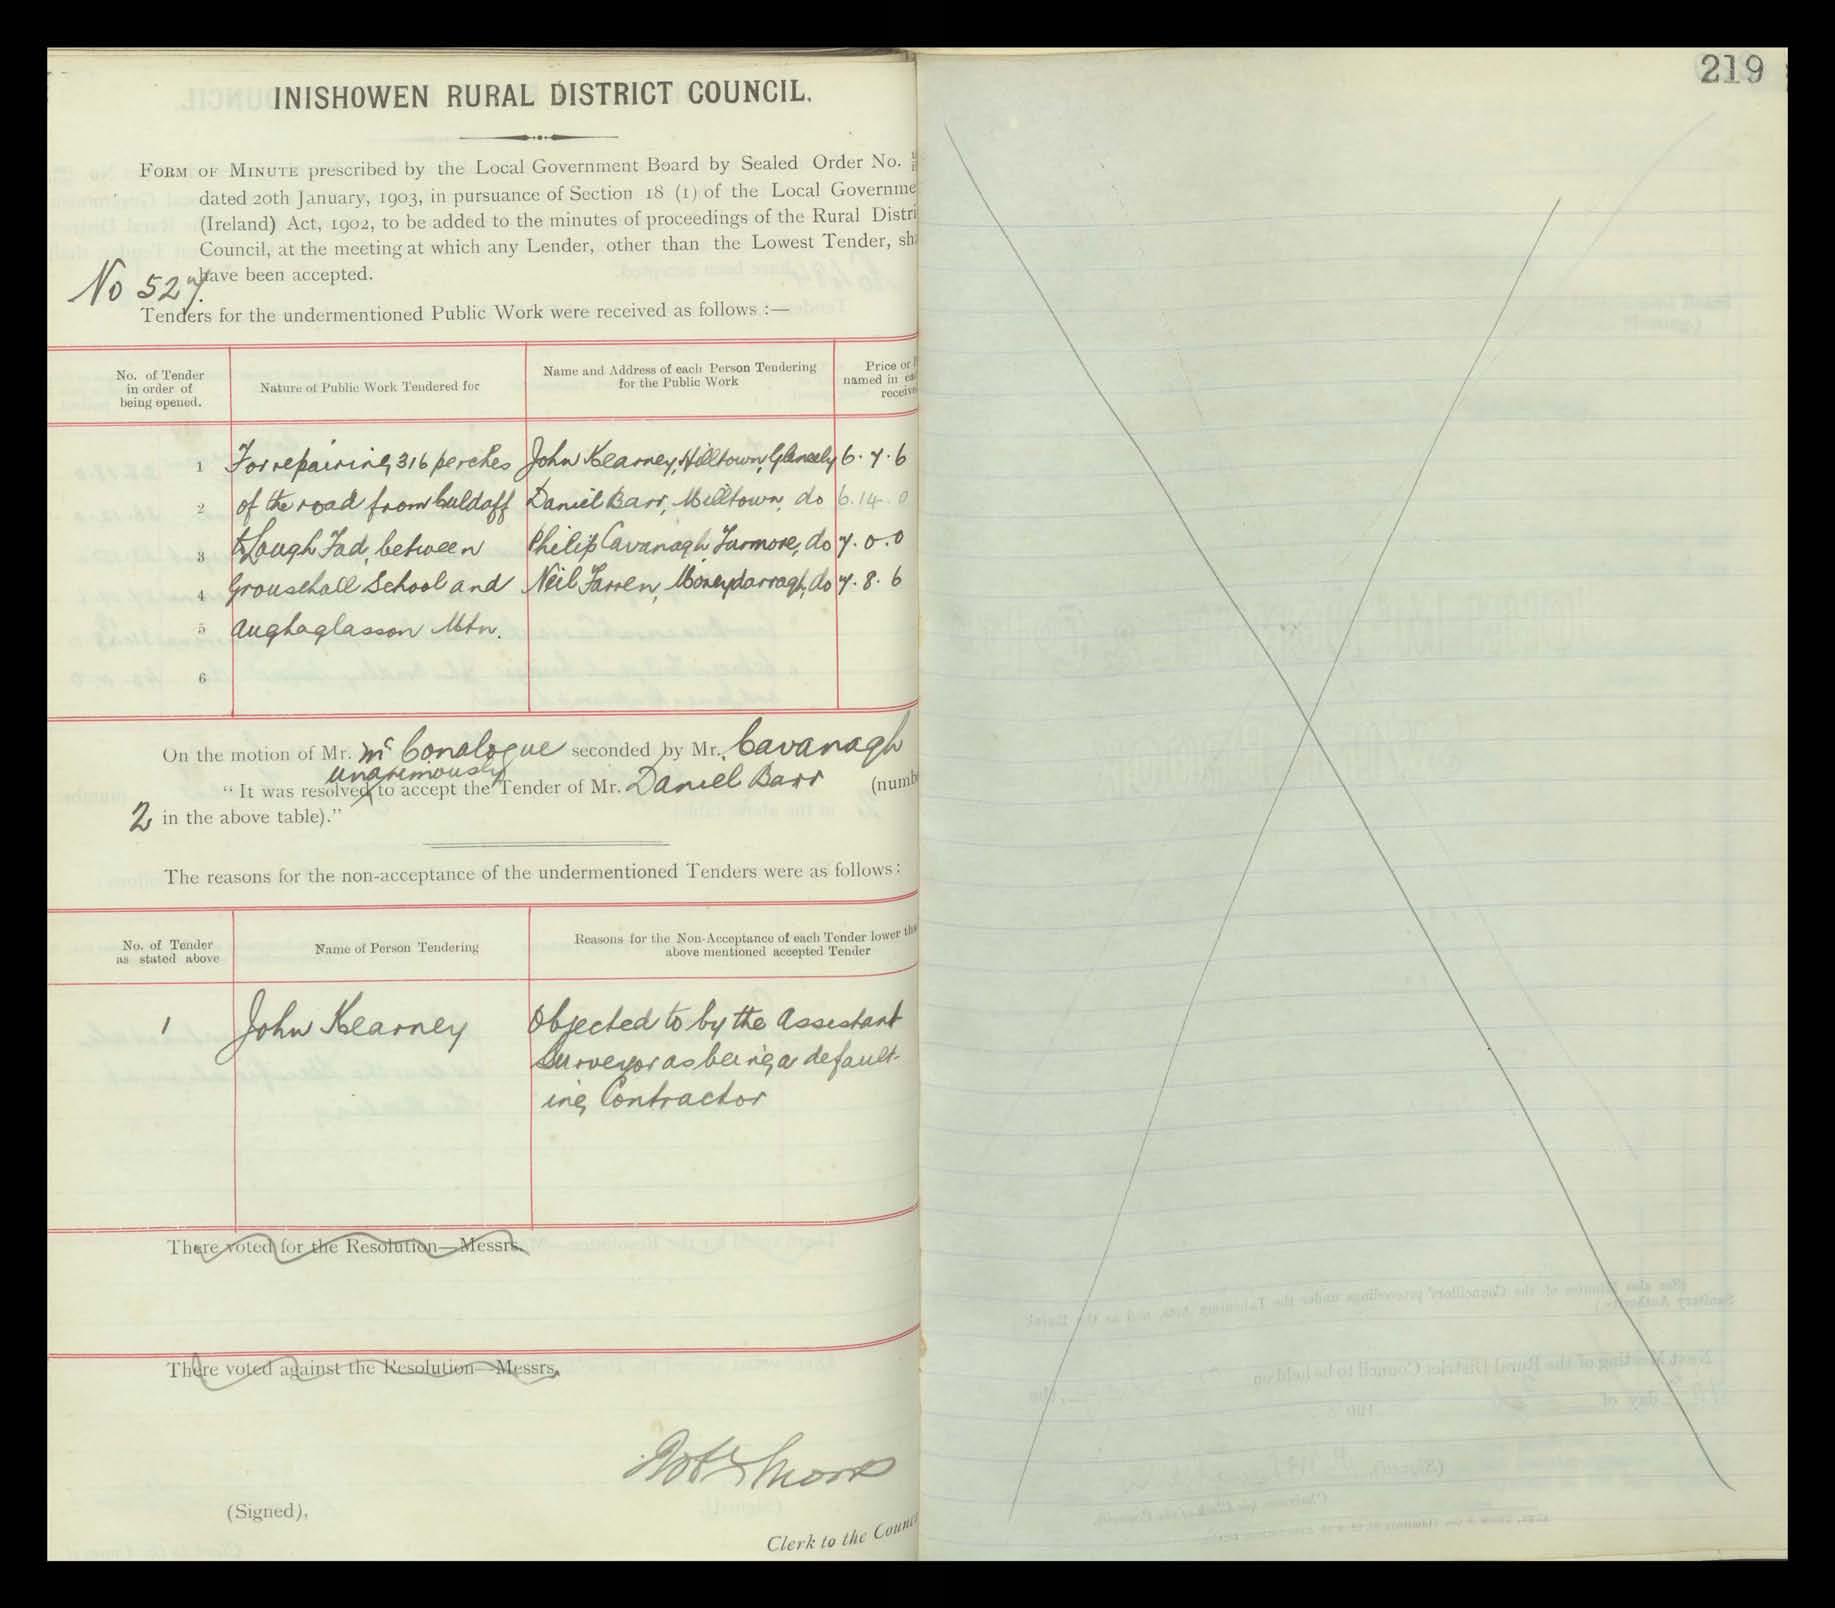 219
INISHOWEN RURAL DISTRICT COUNCIL.
FORM OF MINUTE prescribed by the Local Government Board by Sealed Order No.
dated 20th January, 1903, in pursuance of Section 18 (1) of the Local Governme
(Ireland) Act, 1902, to be added to the minutes of proceedings of the Rural Distri
Council, at the meeting at which any Lender, other than the Lowest Tender, sha
have been accepted.
No 527.
Tenders for the undermentioned Public Work were received as follows :—
No. of Tender in order of being opened.
Nature of Public Work Tendered for
Name and Address of each Person Tendering for the Public Work
Price or named in receive
1 For repairing 316 perches John Kearney, Hilltown, Gleneely 6. 7. 6
2 of the road from Culdaff Daniel Barr, Milltown, do 6. 14. 0
3 to Lough Fad, between Philip Cavanagh, Turmore, do 7. 0. 0
4 Grousehall School and Neil Farren, Moneydarragh, do 7. 8. 6
5 Aughaglasson Mtn.
6
On the motion of Mr. McConalogue seconded by Mr. Cavanagh
unanimously
"It was resolved to accept the Tender of Mr. Daniel Barr (numbe
2 in the above table)."
The reasons for the non-acceptance of the undermentioned Tenders were as follows:
No. of Tender as stated above
Name of Person Tendering
Reasons for the Non-Acceptance of each Tender lower tha above mentioned accepted Tender
1 John Kearney Objected to by the Assistant
Surveyor as being a default-
ing Contractor
There voted for the Resolution—Messrs.
There voted against the Resolution—Messrs.
(Signed),
Clerk to the Counc